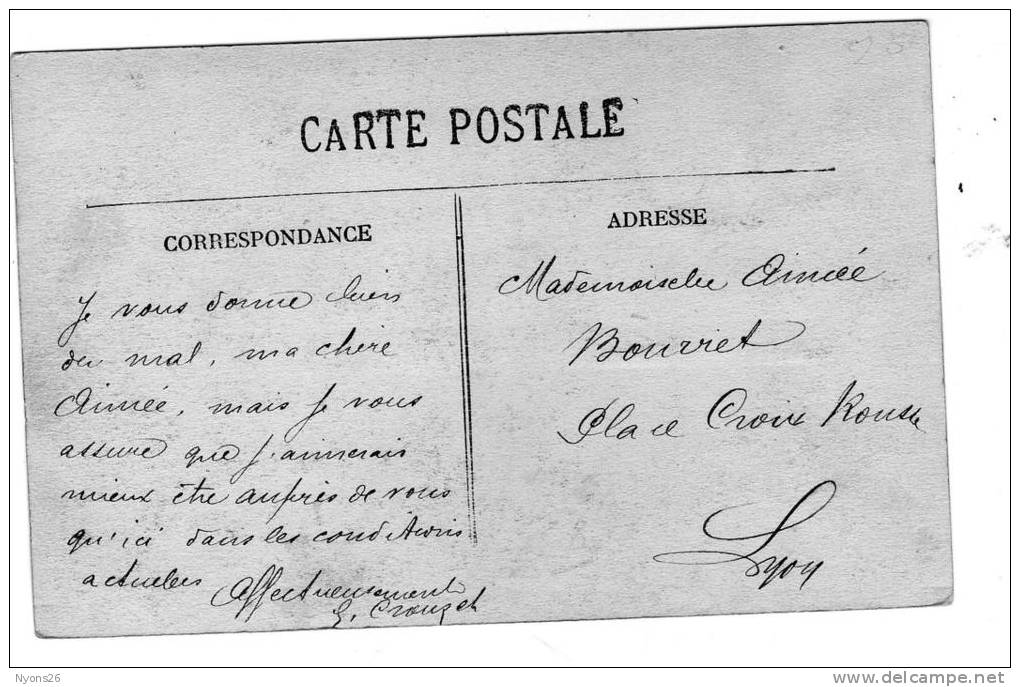 CARTE POSTALE
CORRESPONDANCE
Je vous donne bien
du mal, ma chère
Aimée, mais je vous
assure que j'aimerais
mieux être auprès de vous
qu'ici dans les conditions
actuelles
Affectueusement
E. Crouzet
ADRESSE
Mademoiselle Aimée
Bouvret
Place Croix Rousse
Lyon
Nyons26
delcampe.net